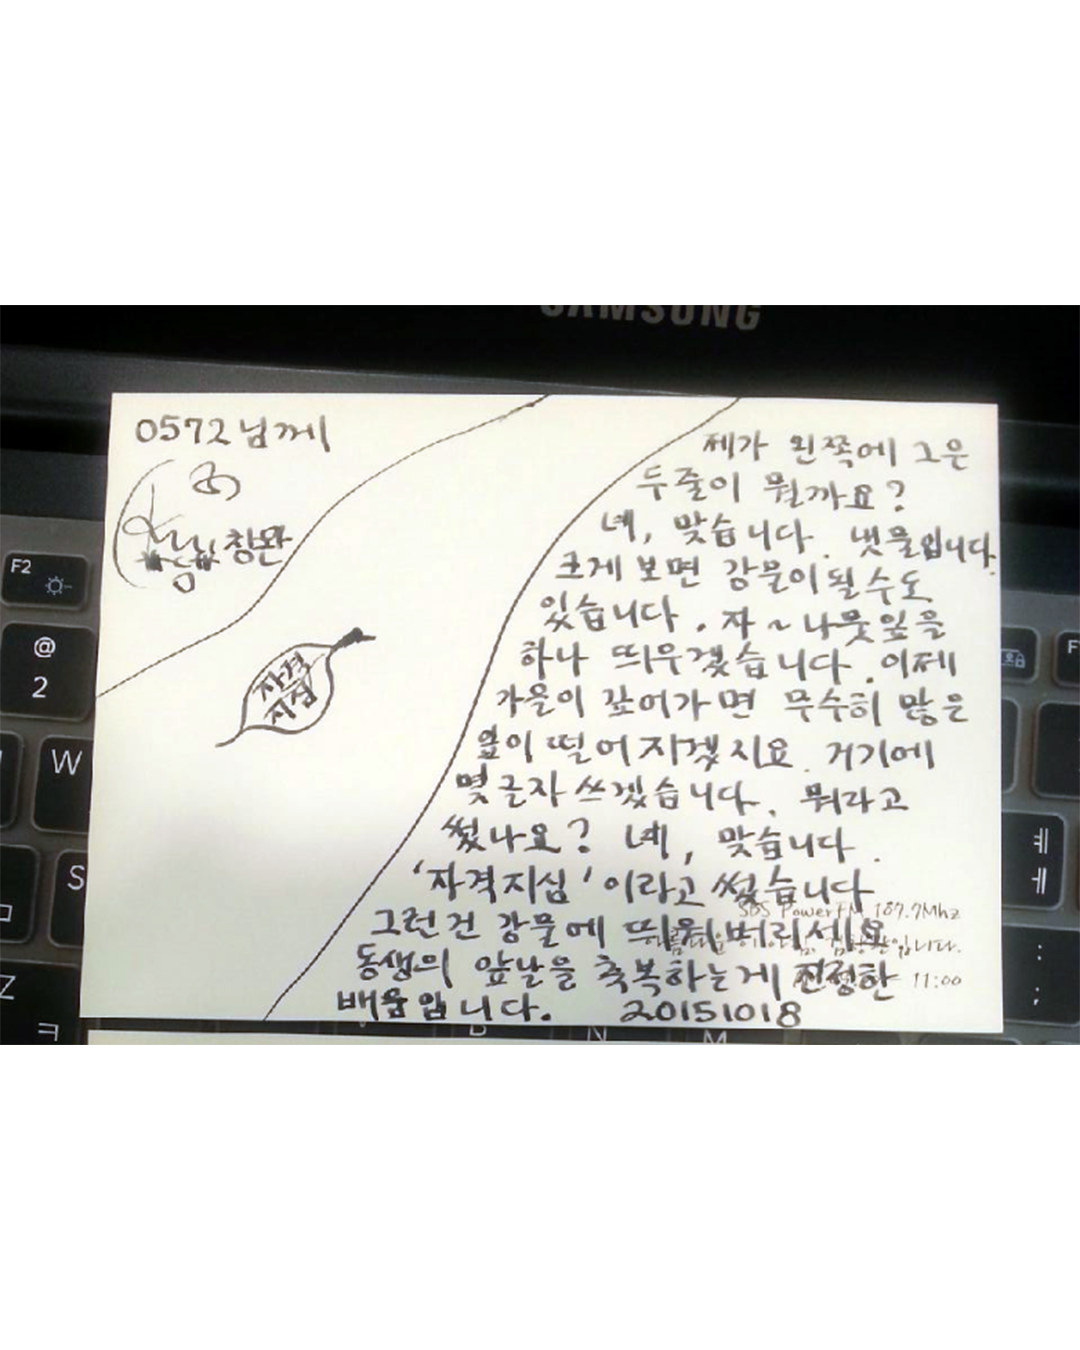 SAMSUNG
0572님께
창완
자격
지심
제가 왼쪽에 그은
두 줄이 뭘까요?
네, 맞습니다. 냇물입니다.
크게 보면 강물이 될 수도
있습니다. 자~ 나뭇잎을
하나 띄우겠습니다. 이제
가을이 깊어가면 무수히 많은
잎이 떨어지겠지요. 거기에
몇 글자 쓰겠습니다. 뭐라고
썼나요? 네, 맞습니다.
'자격지심'이라고 썼습니다
SBS Power FM 107.7Mhz
그런건 강물에 띄워버리세요
입니다.
동생의 앞날을 축복하는게 진정한
11:00
배움입니다. 20151018
F2
@
2
W
S
Z
ㅋ
B
N
M
F
ㅖ
ㅔ
:
;